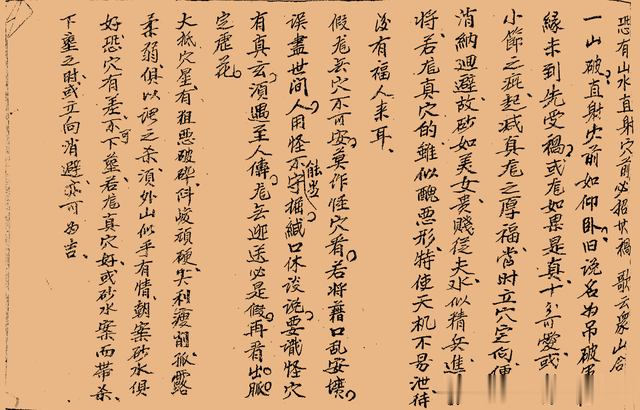 恐有山水直射穴前必招其禍歌云眾山合
一山破直射穴前如仰臥旧说名为吊破
緣未到先受禍或龙如果是真十分可愛或
小節之疵起减真龙之厚福當时立穴定向便
消納廻避故砂如美女贵賤從夫水似精兵進
将若龙真穴的雖似醜惡形特使天机不易泄待
後有福人来耳
假龙无穴不可安莫作怪穴看若将藉口乱安壙
误盡世间人用怪不能逃守掘缄口休谈说要識怪穴
有真玄須遇至人傳龙无迎送必是假再看出脈
定虛花
大抵穴星有粗恶破碎斜峻頑硬尖利瘦削孤露
柔弱俱以謂之杀須外山似乎有情朝案砂水俱
好恐穴有差亦可下墓若龙真穴好或砂水案而带杀
下塟之时或立向消避亦可为吉